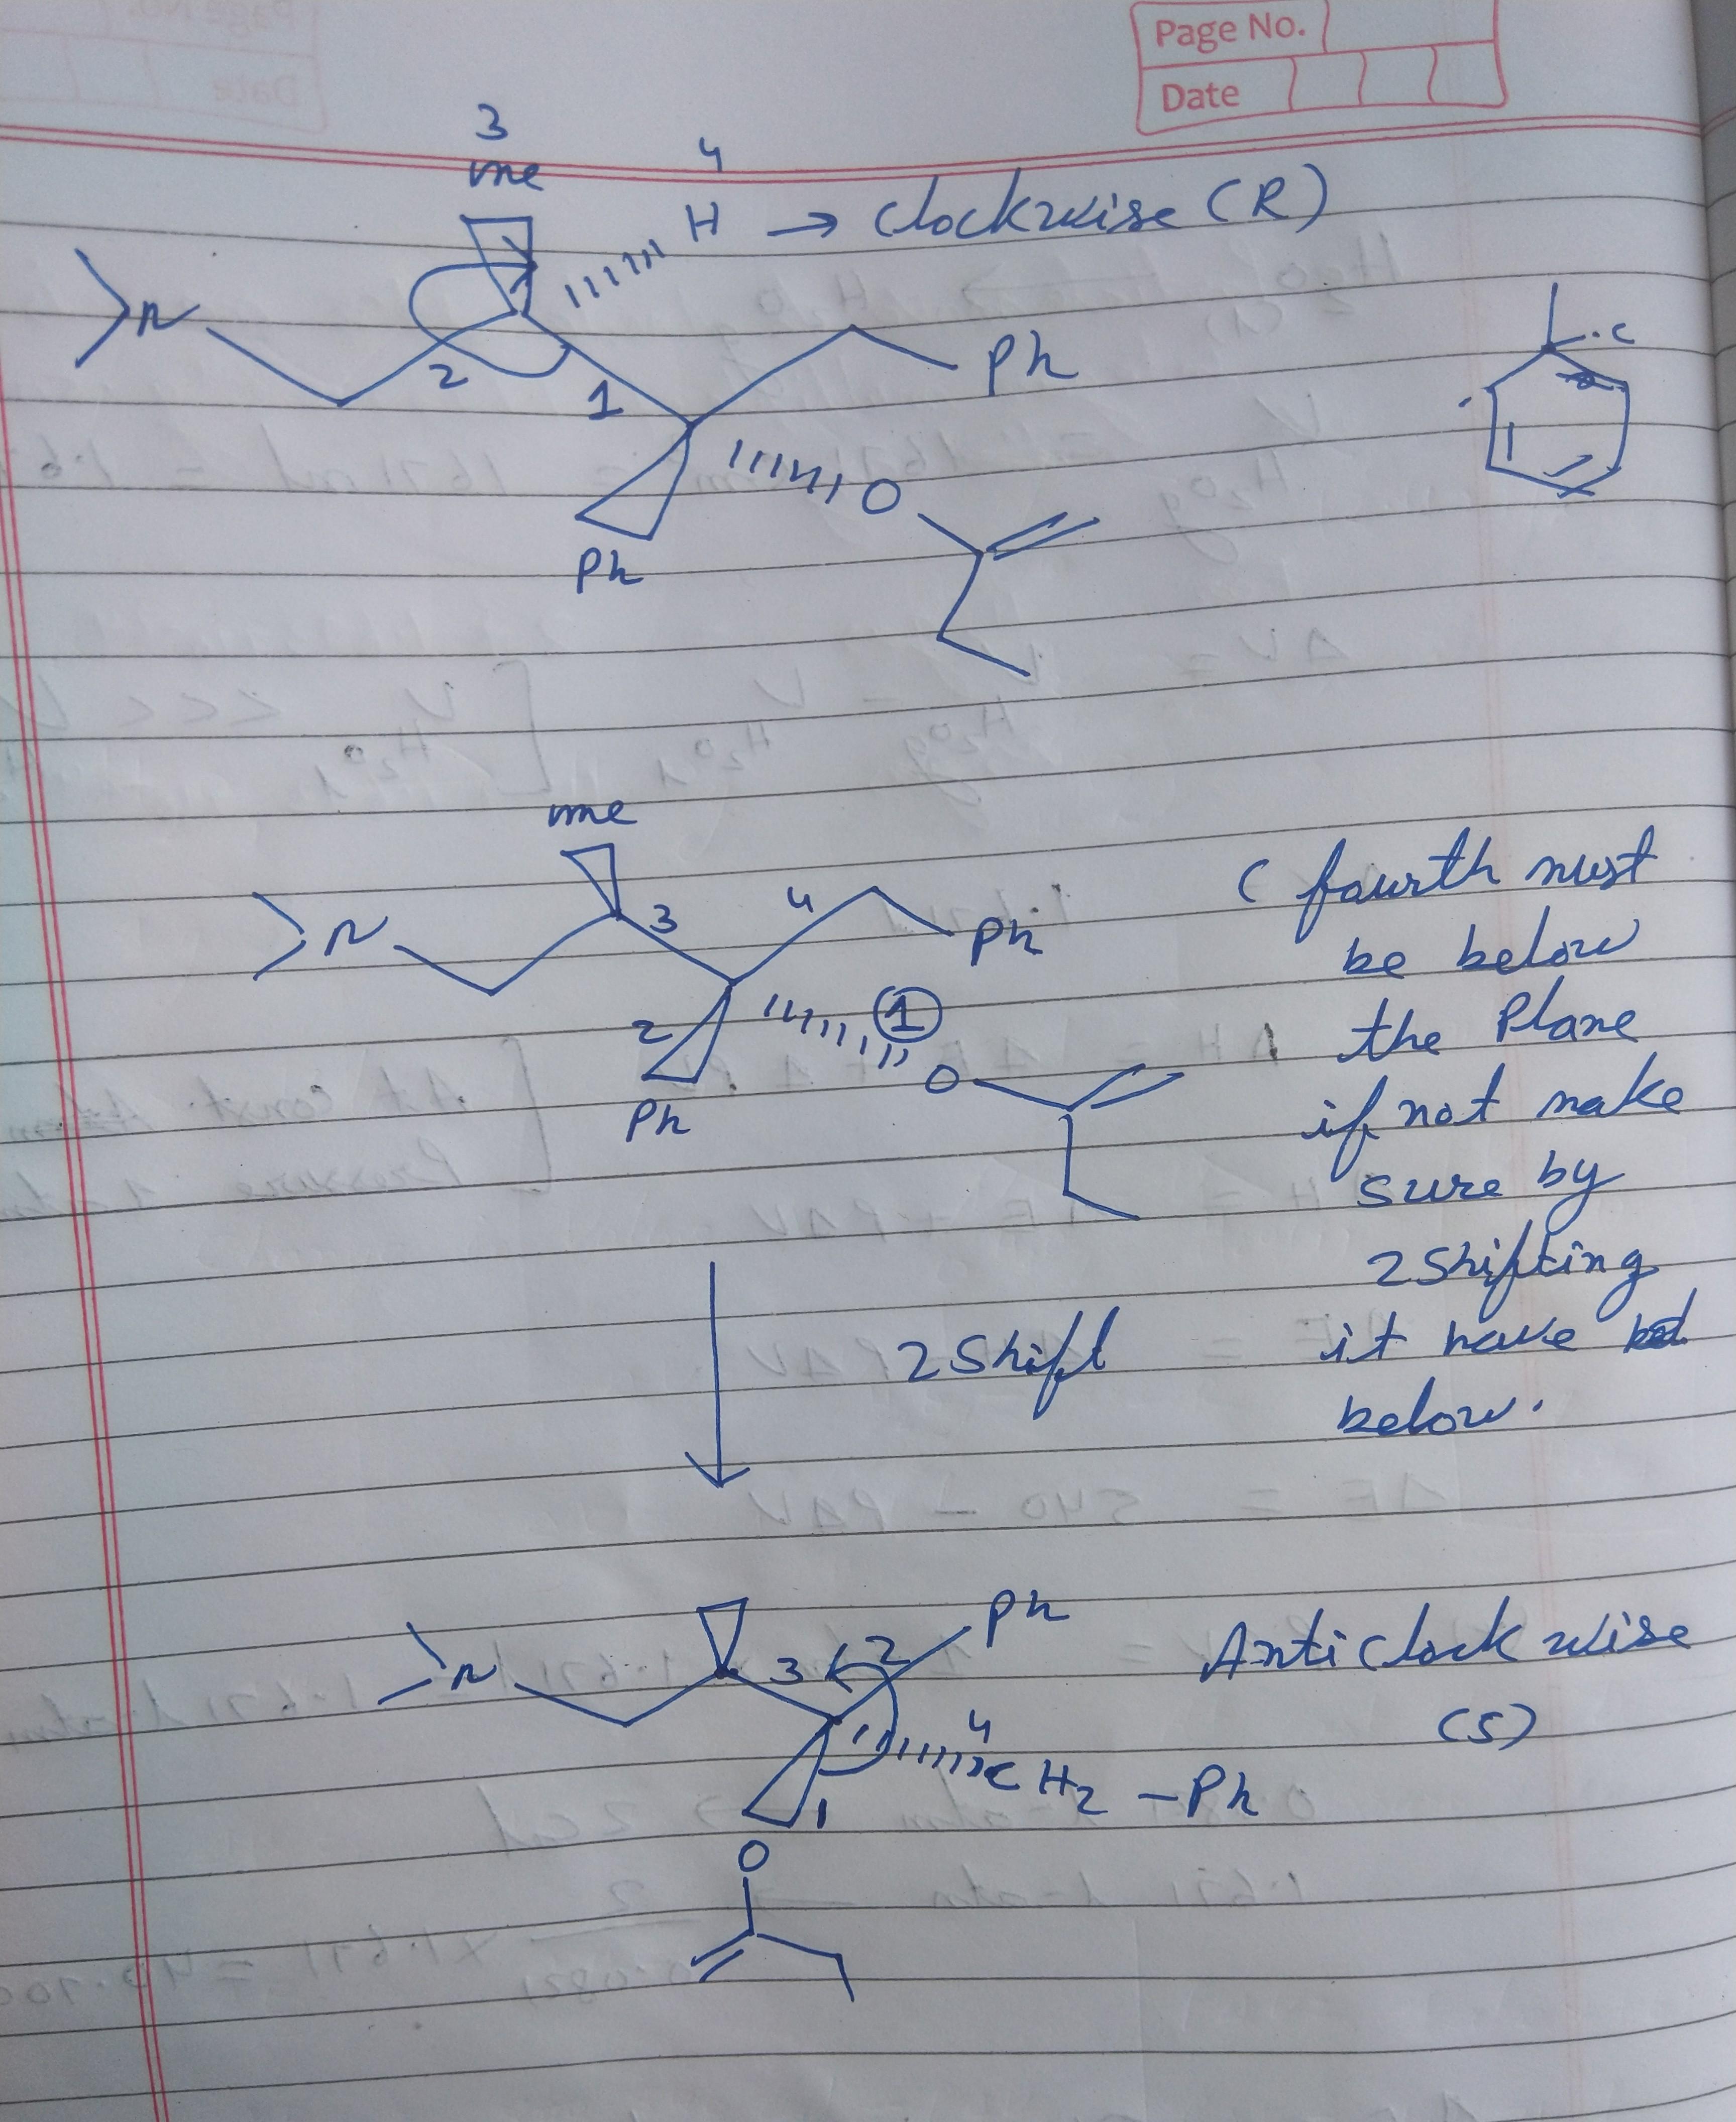 Page No.
Date
3
me
4
H → Clockwise (R)
N
2
1
Ph
c
O
Ph
me
N
3
4
Ph
( fourth must
be below
2
1
the Plane
O
Ph
if not make
sure by
2 Shifting
2 Shift
it have
below.
Ph
N
3
2
Anticlockwise
(S)
4
CH2 - Ph
1
O